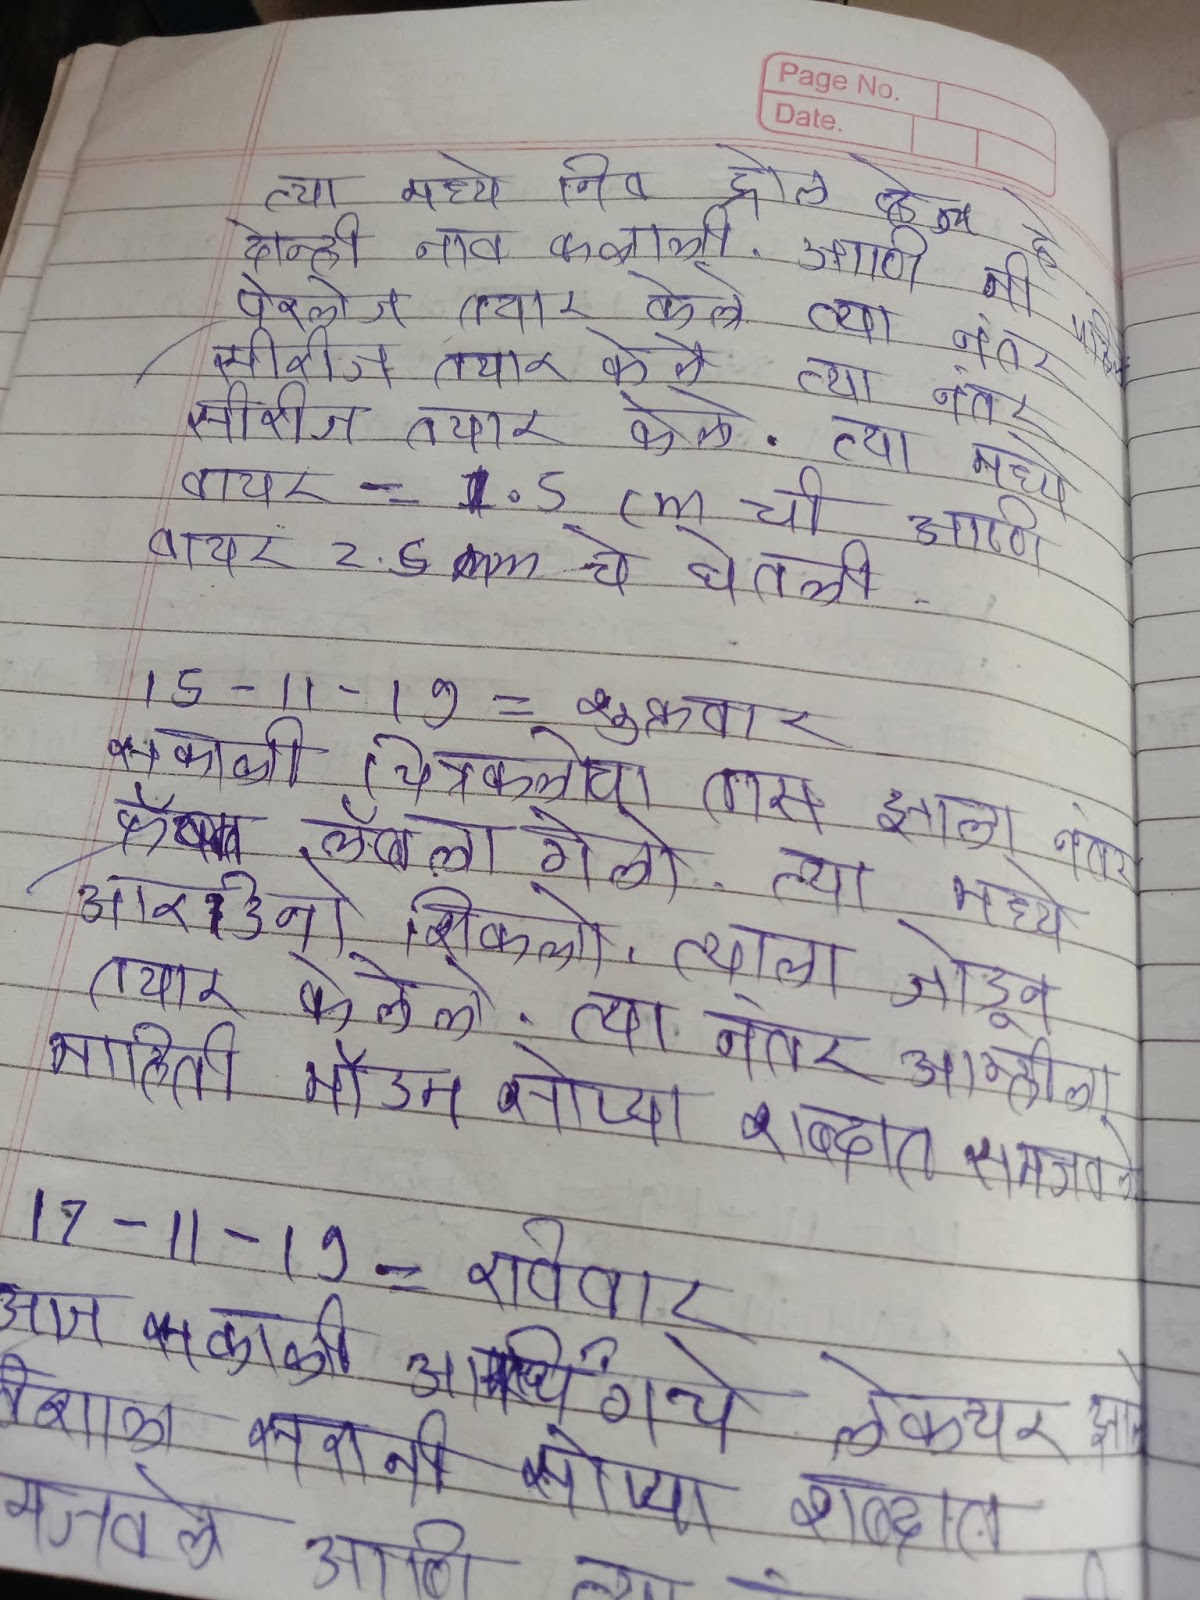 Page No.
Date.
त्या मध्ये निव द्रोल हे
दोन्ही नाव कळाली. आणी मी
पेरलेज तयार केले त्या नंतर
सीरीज तयार केले त्या नंतर
सीरीज तयार केले. त्या मध्ये
वायर = 1.5 cm ची आणि
वायर 2.5 mm चे घेतली.
15-11-19 = शुक्रवार
सकाळी चित्रकलेचा तास झाला नंतर
लॅबला गेलो. त्या मध्ये
आरडिनो शिकलो. त्याला जोडून
तयार केलेले. त्या नंतर आम्हीला
माहिती मॅडम सोप्या शब्दात समजवले
17-11-19 = रविवार
आज सकाळी लेकचर झाले
विशाल सरानी सोप्या शब्दात
मजवले आणि त्या